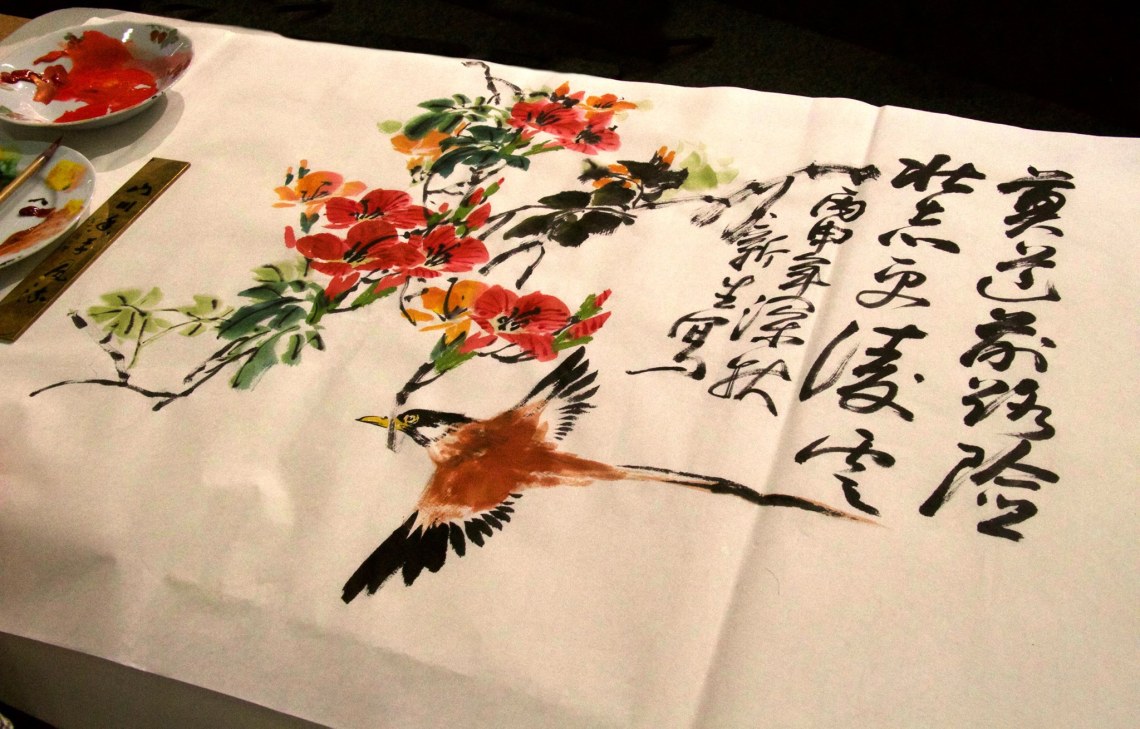 莫道前路險
壮志更凌云
丙申年深秋
新生寫